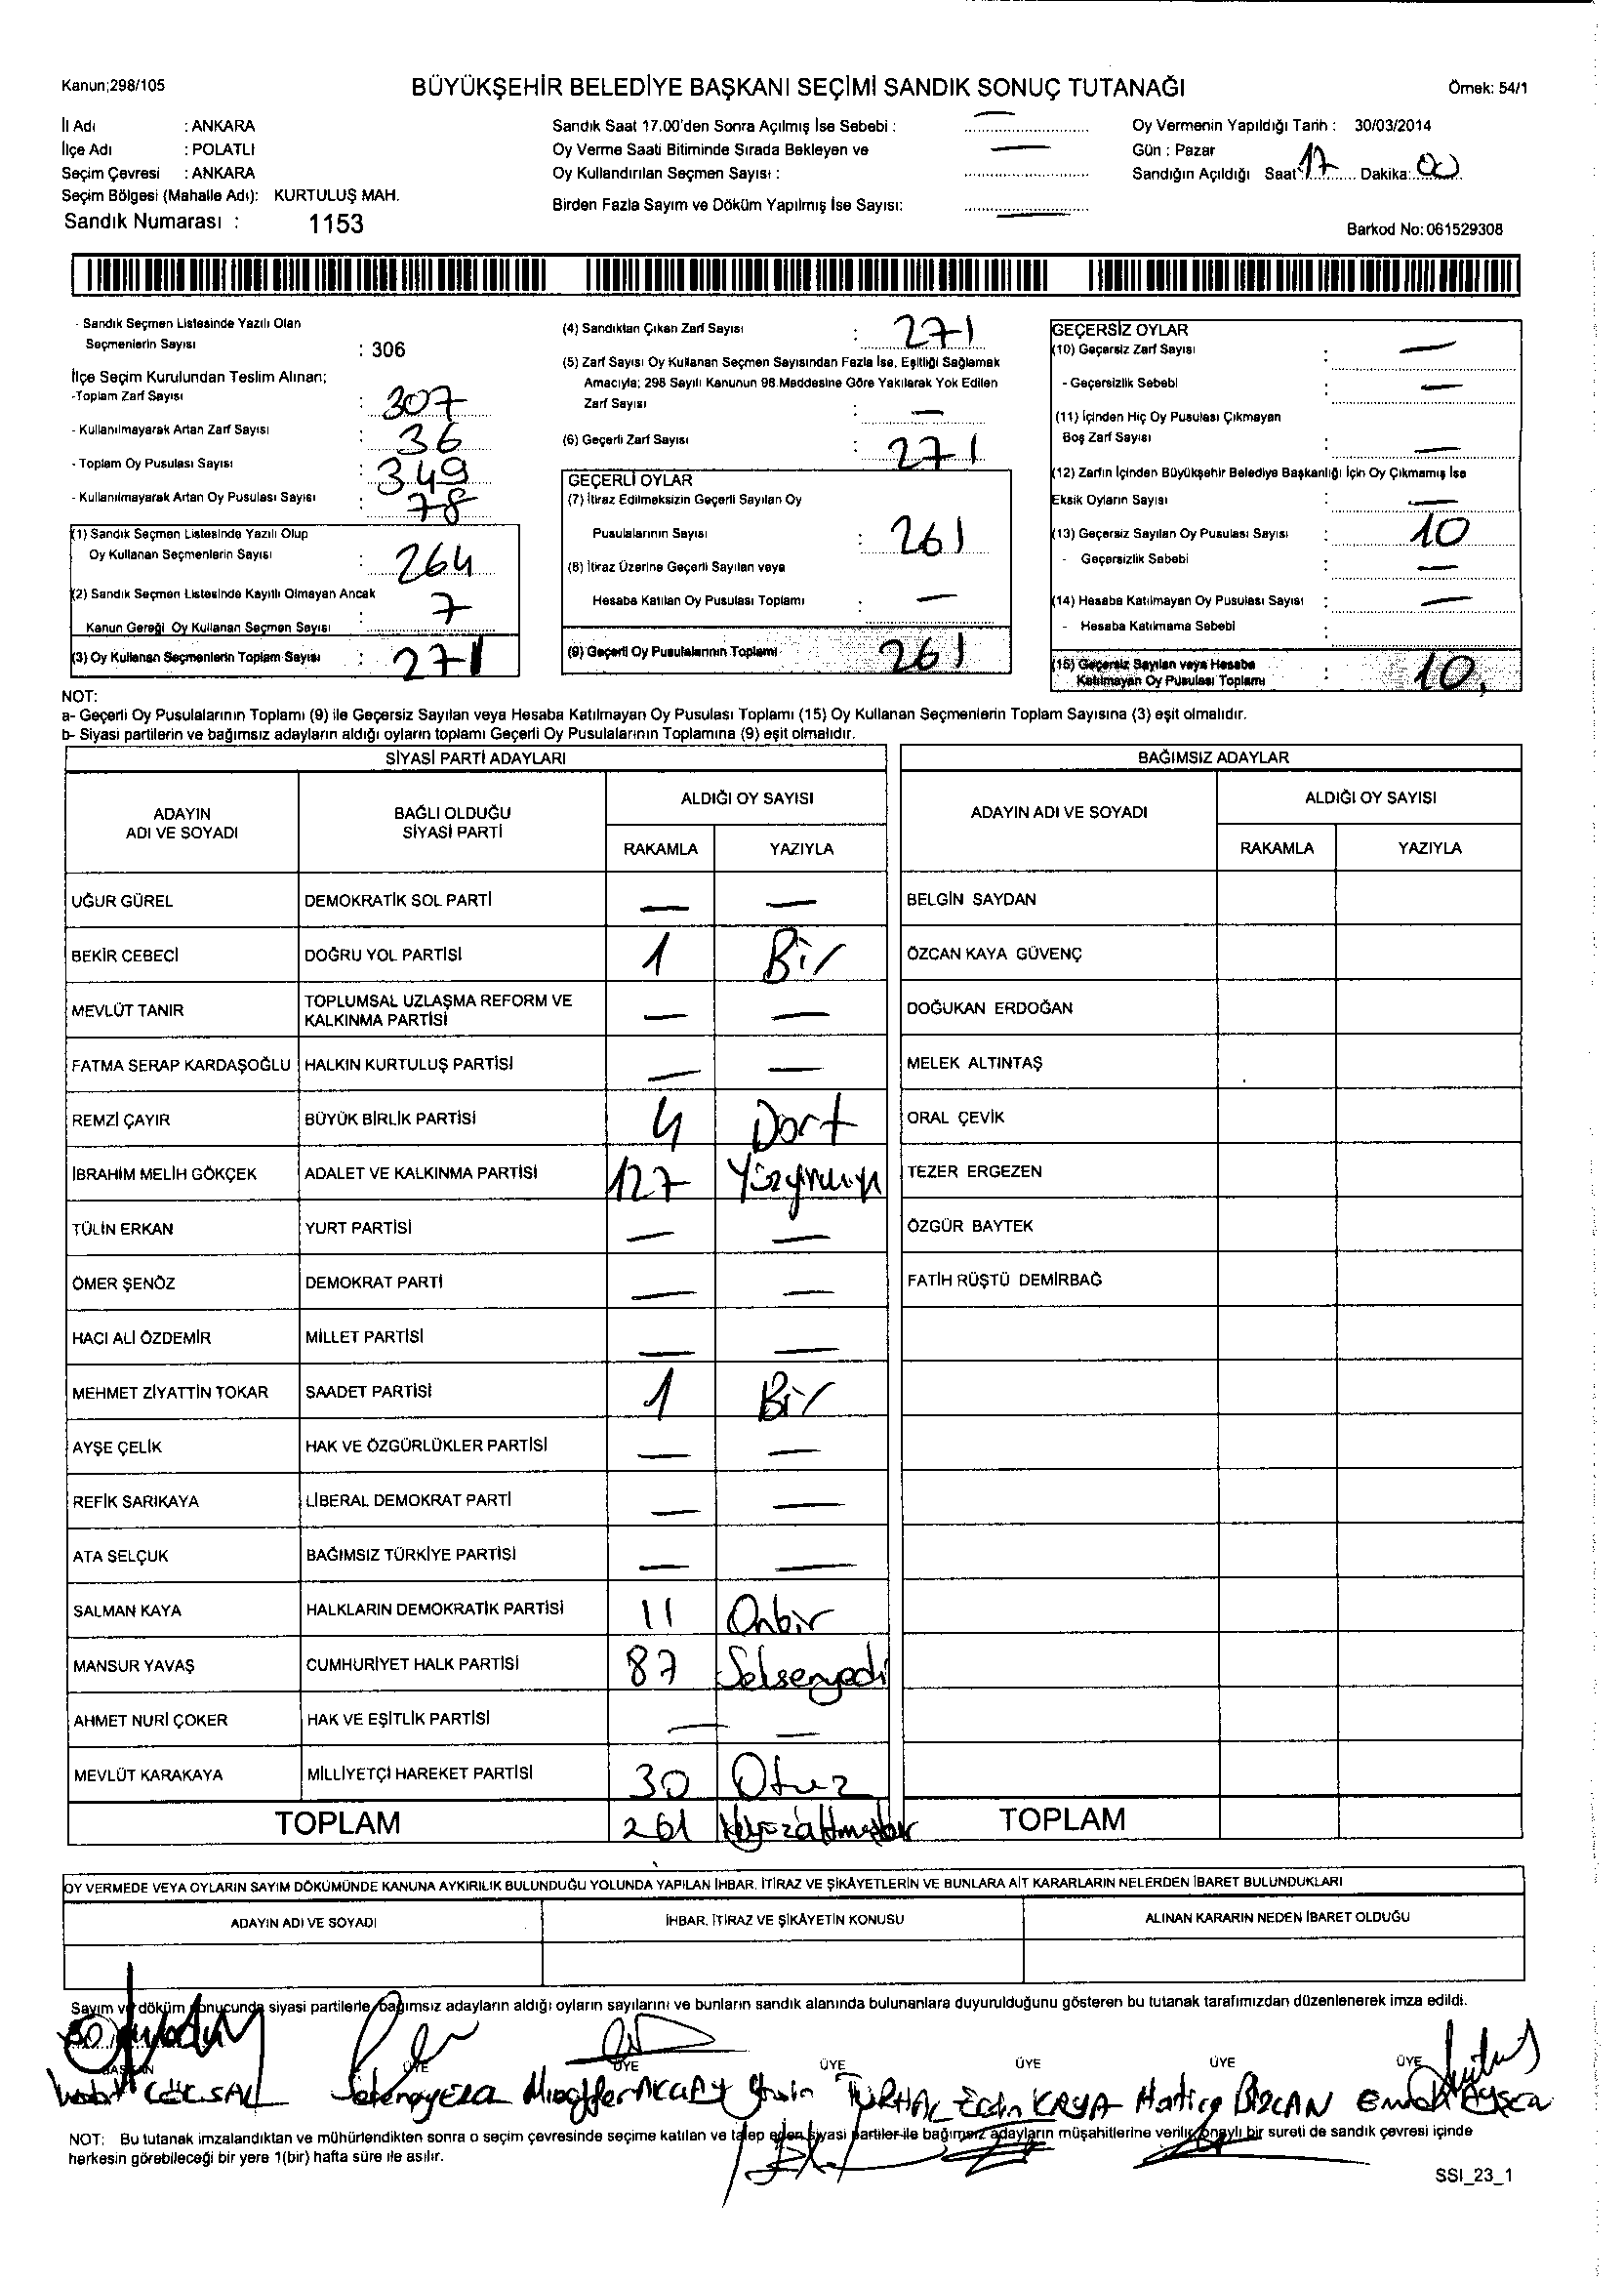 Kanun;298/105
BÜYÜKŞEHİR BELEDİYE BAŞKANI SEÇİMİ SANDIK SONUÇ TUTANAĞI
Örnek: 54/1
İl Adı : ANKARA
İlçe Adı : POLATLI
Seçim Çevresi : ANKARA
Seçim Bölgesi (Mahalle Adı): KURTULUŞ MAH.
Sandık Numarası : 1153
Sandık Saat 17.00'den Sonra Açılmış İse Sebebi : —
Oy Verme Saati Bitiminde Sırada Bekleyen ve
Oy Kullandırılan Seçmen Sayısı : —
Birden Fazla Sayım ve Döküm Yapılmış İse Sayısı: —
Oy Vermenin Yapıldığı Tarih : 30/03/2014
Gün : Pazar
Sandığın Açıldığı Saat 17 Dakika: 00
Barkod No: 061529308
- Sandık Seçmen Listesinde Yazılı Olan
Seçmenlerin Sayısı : 306
İlçe Seçim Kurulundan Teslim Alınan;
-Toplam Zarf Sayısı : 307
- Kullanılmayarak Artan Zarf Sayısı : 36
- Toplam Oy Pusulası Sayısı : 349
- Kullanılmayarak Artan Oy Pusulası Sayısı : 78
(1) Sandık Seçmen Listesinde Yazılı Olup
Oy Kullanan Seçmenlerin Sayısı : 264
(2) Sandık Seçmen Listesinde Kayıtlı Olmayan Ancak
Kanun Gereği Oy Kullanan Seçmen Sayısı : 7
(3) Oy Kullanan Seçmenlerin Toplam Sayısı : 271
(4) Sandıktan Çıkan Zarf Sayısı : 271
(5) Zarf Sayısı Oy Kullanan Seçmen Sayısından Fazla İse, Eşitliği Sağlamak
Amacıyla; 298 Sayılı Kanunun 98.Maddesine Göre Yakılarak Yok Edilen
Zarf Sayısı : —
(6) Geçerli Zarf Sayısı : 271
GEÇERLİ OYLAR
(7) İtiraz Edilmeksizin Geçerli Sayılan Oy
Pusulalarının Sayısı : 261
(8) İtiraz Üzerine Geçerli Sayılan veya
Hesaba Katılan Oy Pusulası Toplamı : —
(9) Geçerli Oy Pusulalarının Toplamı 261
GEÇERSİZ OYLAR
(10) Geçersiz Zarf Sayısı : —
- Geçersizlik Sebebi : —
(11) İçinden Hiç Oy Pusulası Çıkmayan
Boş Zarf Sayısı : —
(12) Zarfın İçinden Büyükşehir Belediye Başkanlığı İçin Oy Çıkmamış İse
Eksik Oyların Sayısı : —
(13) Geçersiz Sayılan Oy Pusulası Sayısı : 10
- Geçersizlik Sebebi : —
(14) Hesaba Katılmayan Oy Pusulası Sayısı : —
- Hesaba Katılmama Sebebi :
(15) Geçersiz Sayılan veya Hesaba
Katılmayan Oy Pusulası Toplamı : 10
NOT:
a- Geçerli Oy Pusulalarının Toplamı (9) ile Geçersiz Sayılan veya Hesaba Katılmayan Oy Pusulası Toplamı (15) Oy Kullanan Seçmenlerin Toplam Sayısına (3) eşit olmalıdır.
b- Siyasi partilerin ve bağımsız adayların aldığı oyların toplamı Geçerli Oy Pusulalarının Toplamına (9) eşit olmalıdır.
SİYASİ PARTİ ADAYLARI
ADAYIN ADI VE SOYADI BAĞLI OLDUĞU SİYASİ PARTİ ALDIĞI OY SAYISI
RAKAMLA YAZIYLA
UĞUR GÜREL DEMOKRATİK SOL PARTİ — —
BEKİR CEBECİ DOĞRU YOL PARTİSİ 1 Bir
MEVLÜT TANIR TOPLUMSAL UZLAŞMA REFORM VE KALKINMA PARTİSİ — —
FATMA SERAP KARDAŞOĞLU HALKIN KURTULUŞ PARTİSİ — —
REMZİ ÇAYIR BÜYÜK BİRLİK PARTİSİ 4 Dört
İBRAHİM MELİH GÖKÇEK ADALET VE KALKINMA PARTİSİ 127
TÜLİN ERKAN YURT PARTİSİ — —
ÖMER ŞENÖZ DEMOKRAT PARTİ — —
HACI ALİ ÖZDEMİR MİLLET PARTİSİ — —
MEHMET ZİYATTİN TOKAR SAADET PARTİSİ 1 Bir
AYŞE ÇELİK HAK VE ÖZGÜRLÜKLER PARTİSİ — —
REFİK SARIKAYA LİBERAL DEMOKRAT PARTİ — —
ATA SELÇUK BAĞIMSIZ TÜRKİYE PARTİSİ — —
SALMAN KAYA HALKLARIN DEMOKRATİK PARTİSİ 11 Onbir
MANSUR YAVAŞ CUMHURİYET HALK PARTİSİ 87 Seksenyedi
AHMET NURİ ÇOKER HAK VE EŞİTLİK PARTİSİ — —
MEVLÜT KARAKAYA MİLLİYETÇİ HAREKET PARTİSİ 30 Otuz
TOPLAM 261
BAĞIMSIZ ADAYLAR
ADAYIN ADI VE SOYADI ALDIĞI OY SAYISI
RAKAMLA YAZIYLA
BELGİN SAYDAN
ÖZCAN KAYA GÜVENÇ
DOĞUKAN ERDOĞAN
MELEK ALTINTAŞ
ORAL ÇEVİK
TEZER ERGEZEN
ÖZGÜR BAYTEK
FATİH RÜŞTÜ DEMİRBAĞ
TOPLAM
OY VERMEDE VEYA OYLARIN SAYIM DÖKÜMÜNDE KANUNA AYKIRILIK BULUNDUĞU YOLUNDA YAPILAN İHBAR, İTİRAZ VE ŞİKÂYETLERİN VE BUNLARA AİT KARARLARIN NELERDEN İBARET BULUNDUKLARI
ADAYIN ADI VE SOYADI İHBAR, İTİRAZ VE ŞİKÂYETİN KONUSU ALINAN KARARIN NEDEN İBARET OLDUĞU
Sayım ve döküm sonucunda siyasi partilerle bağımsız adayların aldığı oyların sayılarını ve bunların sandık alanında bulunanlara duyurulduğunu gösteren bu tutanak tarafımızdan düzenlenerek imza edildi.
BAŞKAN ÜYE ÜYE ÜYE ÜYE ÜYE ÜYE
GÖKSAL TURHAL KAYA Hatice BİZCAN
NOT: Bu tutanak imzalandıktan ve mühürlendikten sonra o seçim çevresinde seçime katılan ve talep eden siyasi partiler ile bağımsız adayların müşahitlerine verilir, onaylı bir sureti de sandık çevresi içinde
herkesin görebileceği bir yere 1(bir) hafta süre ile asılır.
SSI_23_1